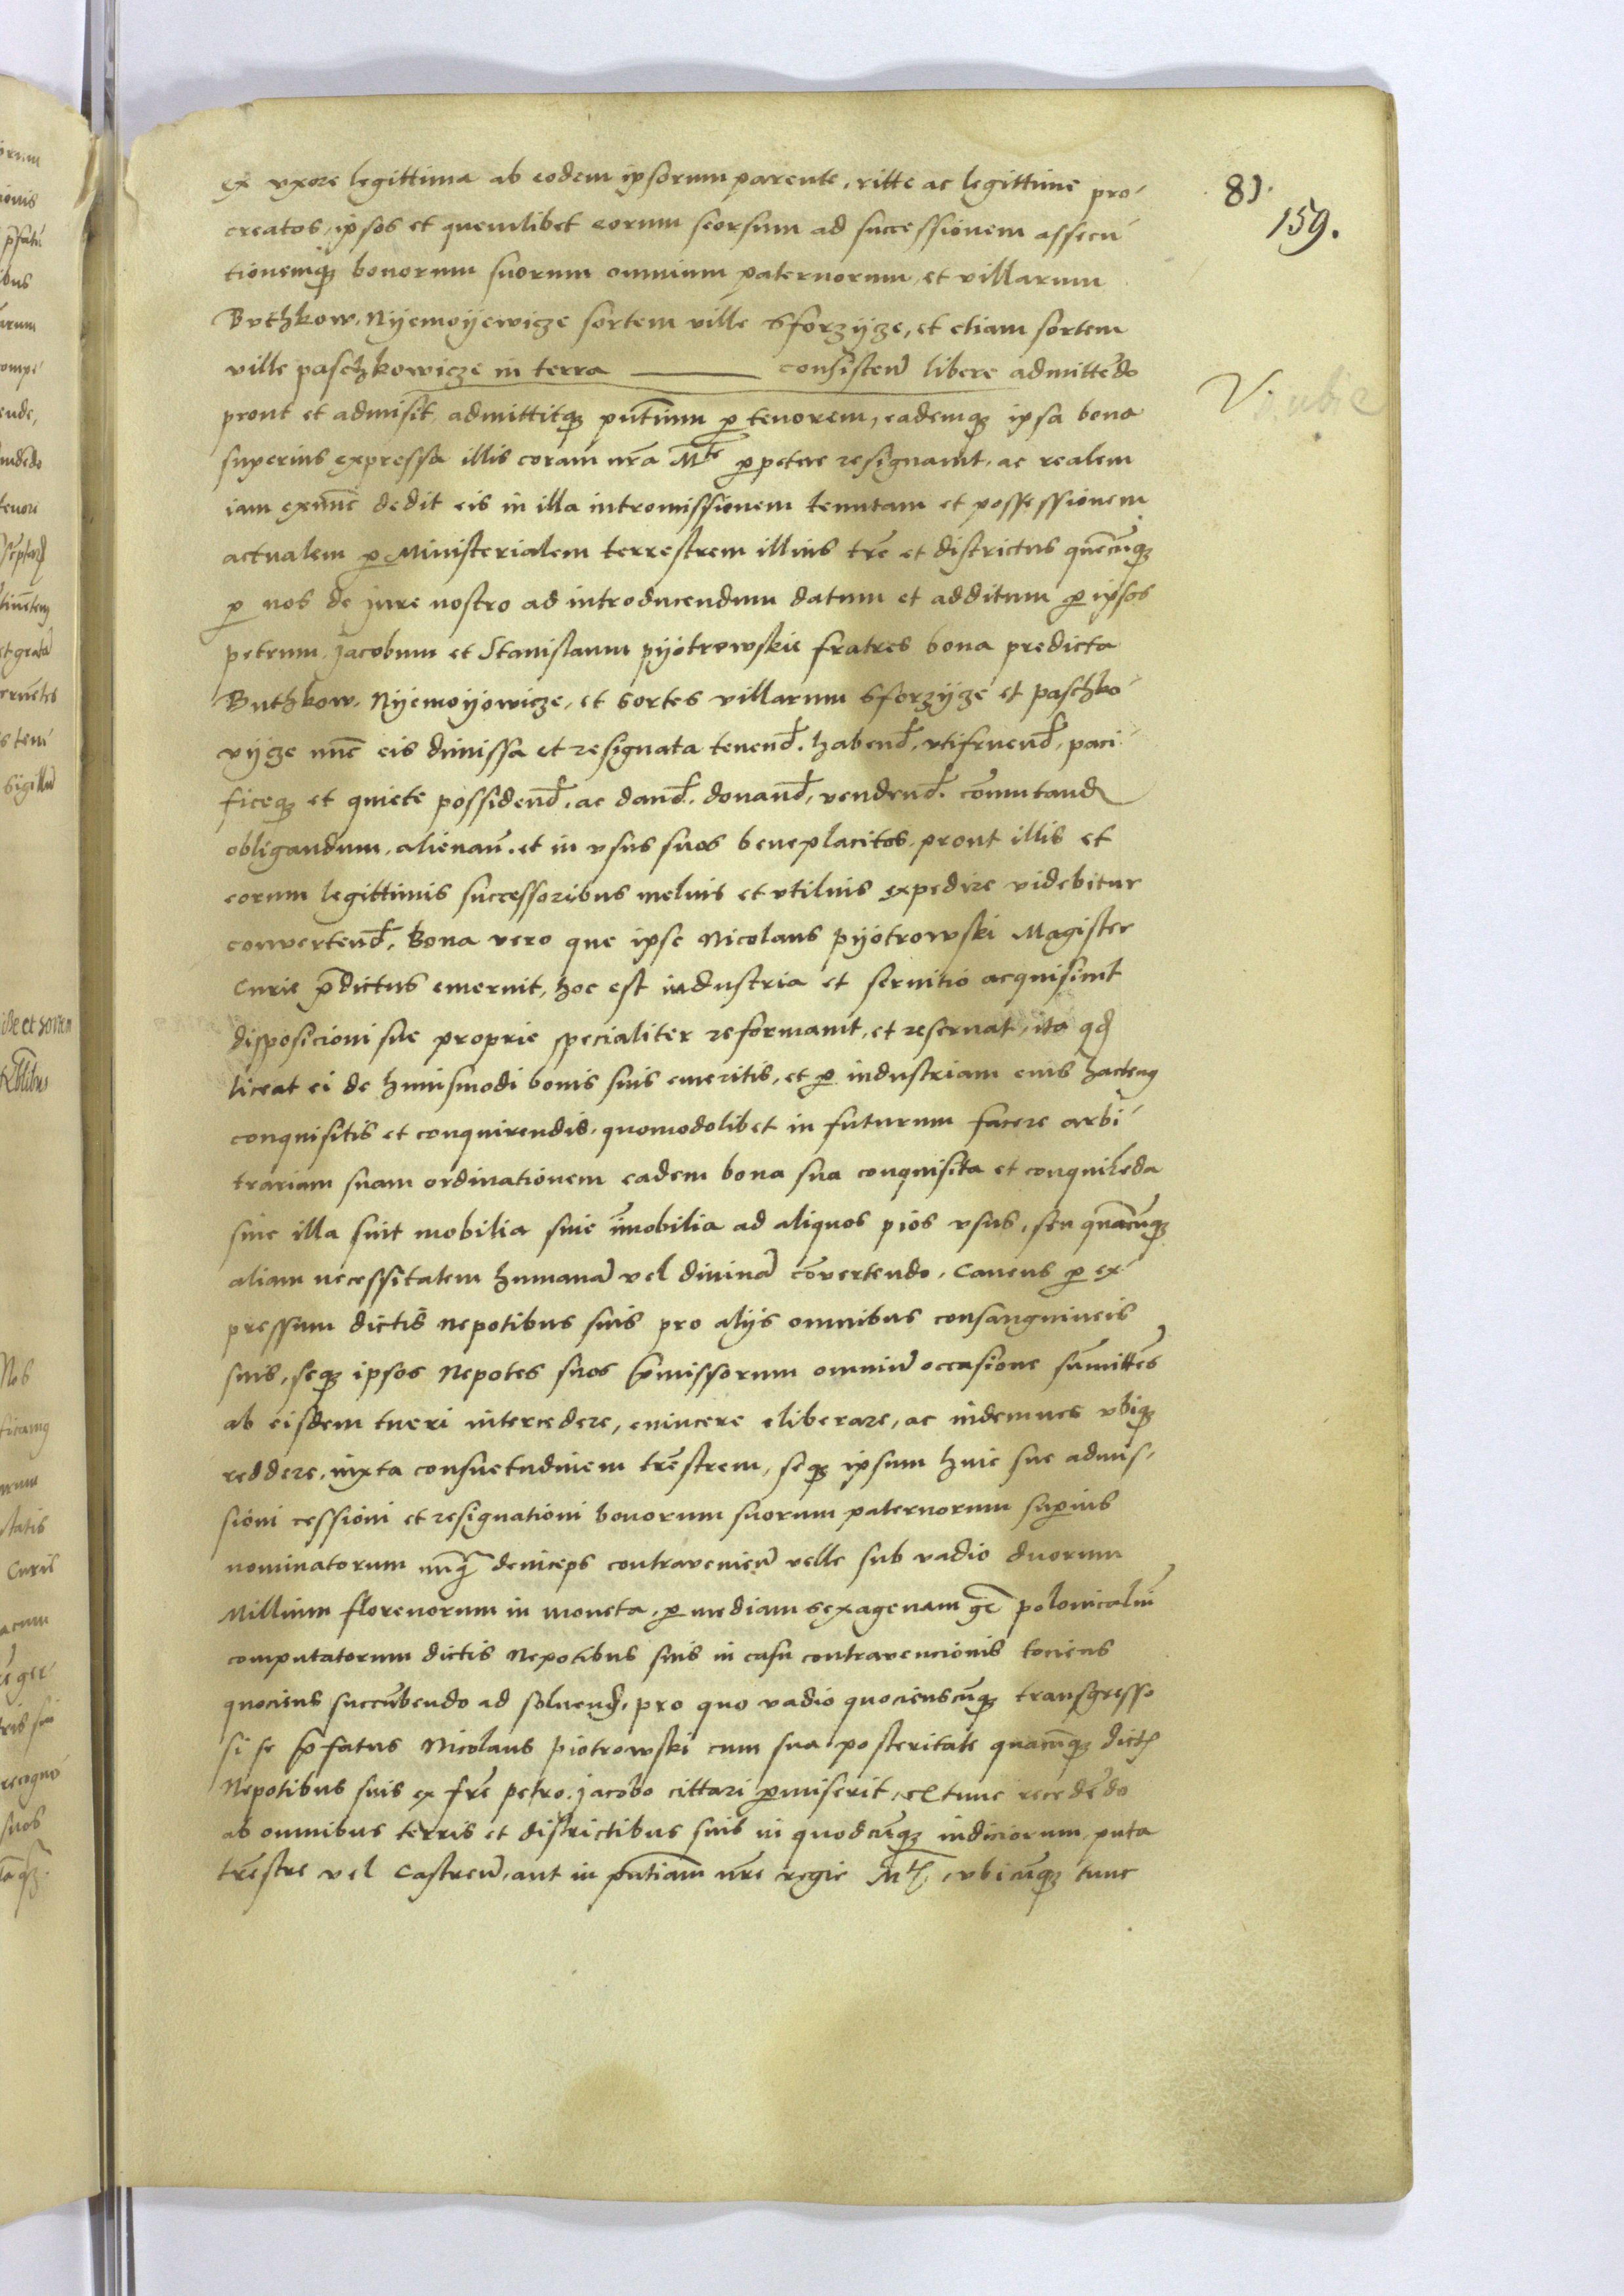 81.
159.
ex vxore legittima ab eodem ipsorum parente, ritte ac legittime pro-
creatos, ipsos et quemlibet eorum seorsum ad successionem assecu-
tionemq₃ bonorum suorum omnium paternorum, et villarum
Buthkow, Nyemoyewicze sortem ville Sforzycze, et etiam sortem
ville paschkowicze in terra ——— consisten̄ libere admittēdo
prout et admisit, admittitq₃ pn̄tium ꝑ tenorem, eademq₃ ipsa bona
superius expressa illis coram nr̄a Mte ꝑpetue resignauit, ac realem
iam exnūc dedit eis in illa intromissionem tenutam et possessionem
actualem ꝑ Ministerialem terrestrem illius tr̄e et districtus quēcūq₃
ꝑ nos de jure nostro ad introducendum datum et additum ꝑ ipsos
petrum, jacobum et Stanislaum pyotrowskie fratres bona predicta
Buthkow, Nyemoyowicze, et sortes villarum Sforzycze et paschko-
vycze nūc eis dimissa et resignata tenend̄, habend̄, vtifruend̄, paci-
ficeq₃ et quiete possidend̄, ac dand̄, donand̄, vendend̄, cōmutand̄
obligandum, alienan̄, et in vsus suos beneplacitos, prout illis et
eorum legittimis successoribus melius et vtilius expedire videbitur
convertend̄, Bona vero que ipse Nicolaus pyotrowski Magister
Curie p̄dictus emeruit, hoc est industria et seruitio acquisiuit
disposicioni sue proprie specialiter reformauit, et reseruat, ita qd̄
liceat ei de huiusmodi bonis suis emeritis, et ꝑ industriam eius hacteng
conquisitis et conquirendis, quomodolibet in futurum facere arbi-
trariam suam ordinationem eadem bona sua conquisita et conquirēda
siue illa sint mobilia siue īmobilia ad aliquos pios vsus, seu quācūq₃
aliam necessitatem humanā vel diuinā cōvertendo, Cauens ꝑ ex-
pressum dictis Nepotibus suis pro alijs omnibus consanguineis
suis, seq₃ ipsos Nepotes suos p̄missorum omniū occasione sūmittēs
ab eisdem tueri intercedere, euincere eliberare, ac indemnes vbiq₃
reddere, iuxta consuetudinem tr̄estrem, seq₃ ipsum huic sue admis-
sioni cessioni et resignationi bonorum suorum paternorum suꝑius
nominatorum nūq̄ deinceps contravenien̄ velle sub vadio duorum
Millium florenorum in moneta, ꝑ mediam sexagenam gr̄ polonicaliū
computatorum dictis Nepotibus suis in casu contravencionis tociens
quociens succūbendo ad soluend̄, pro quo vadio quocienscūq₃ transgresso
si se p̄fatus Nicolaus piotrowski cum sua posteritate quacūq₃ dictꝭ
Nepotibus suis ex fr̄e petro, jacobo cittari ꝑmiserit, extunc recedēdo
ab omnibus terris et districtibus suis in quodcūq₃ iudiciorum, puta
tr̄estre vel Castren̄, aut in pn̄tiam nr̄e regie Mtꝭ, vbicūq₃ tunc